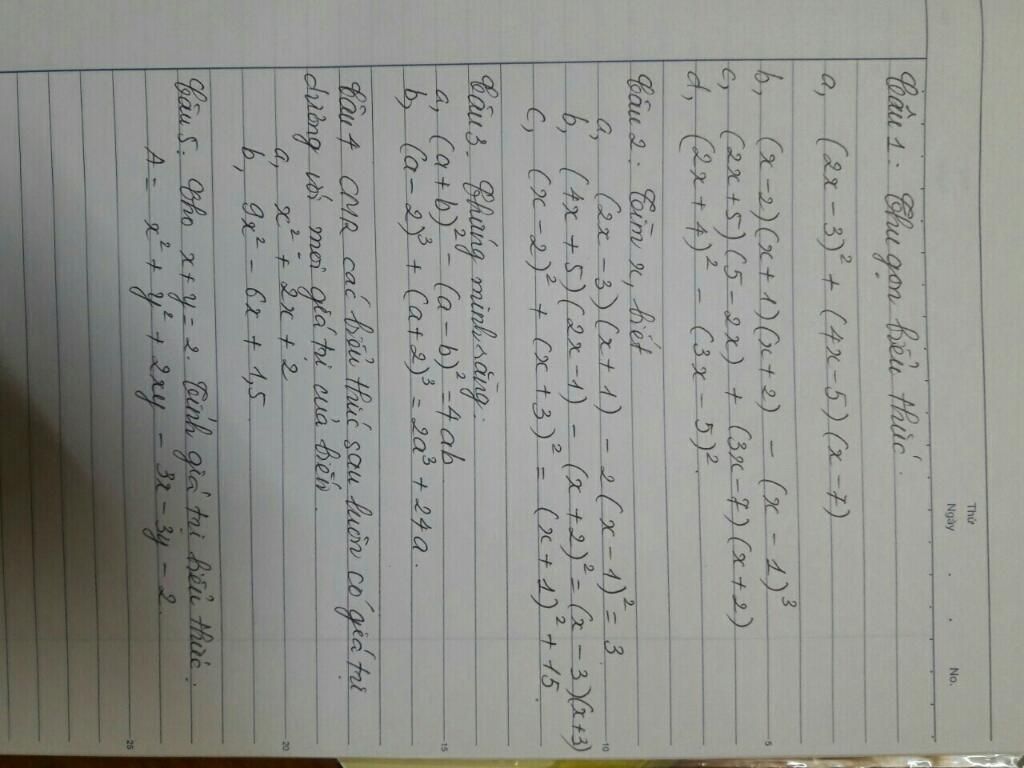 Thứ
Ngày . . No.
Câu 1: Thu gọn biểu thức.
a, (2x - 3)² + (4x - 5)(x - 7)
b, (x - 2)(x + 1)(x + 2) - (x - 1)³
c, (2x + 5)(5 - 2x) + (3x - 7)(x + 2)
d, (2x + 4)² - (3x - 5)²
Câu 2: Tìm x, biết
a, (2x - 3)(x + 1) - 2(x - 1)² = 3
b, (4x + 5)(2x - 1) - (x + 2)² = (x - 3)(x + 3)
c, (x - 2)² + (x + 3)² = (x + 1)² + 15
Câu 3. Chứng minh rằng.
a, (a + b)² - (a - b)² = 4ab
b, (a - 2)³ + (a + 2)³ = 2a³ + 24a.
Câu 4 CMR các biểu thức sau luôn có giá trị
dương với mọi giá trị của biến.
a, x² + 2x + 2
b, 9x² - 6x + 1,5
Câu 5. Cho x + y = 2. Tính giá trị biểu thức.
A = x² + y² + 2xy - 3x - 3y - 2.
5
10
15
20
25